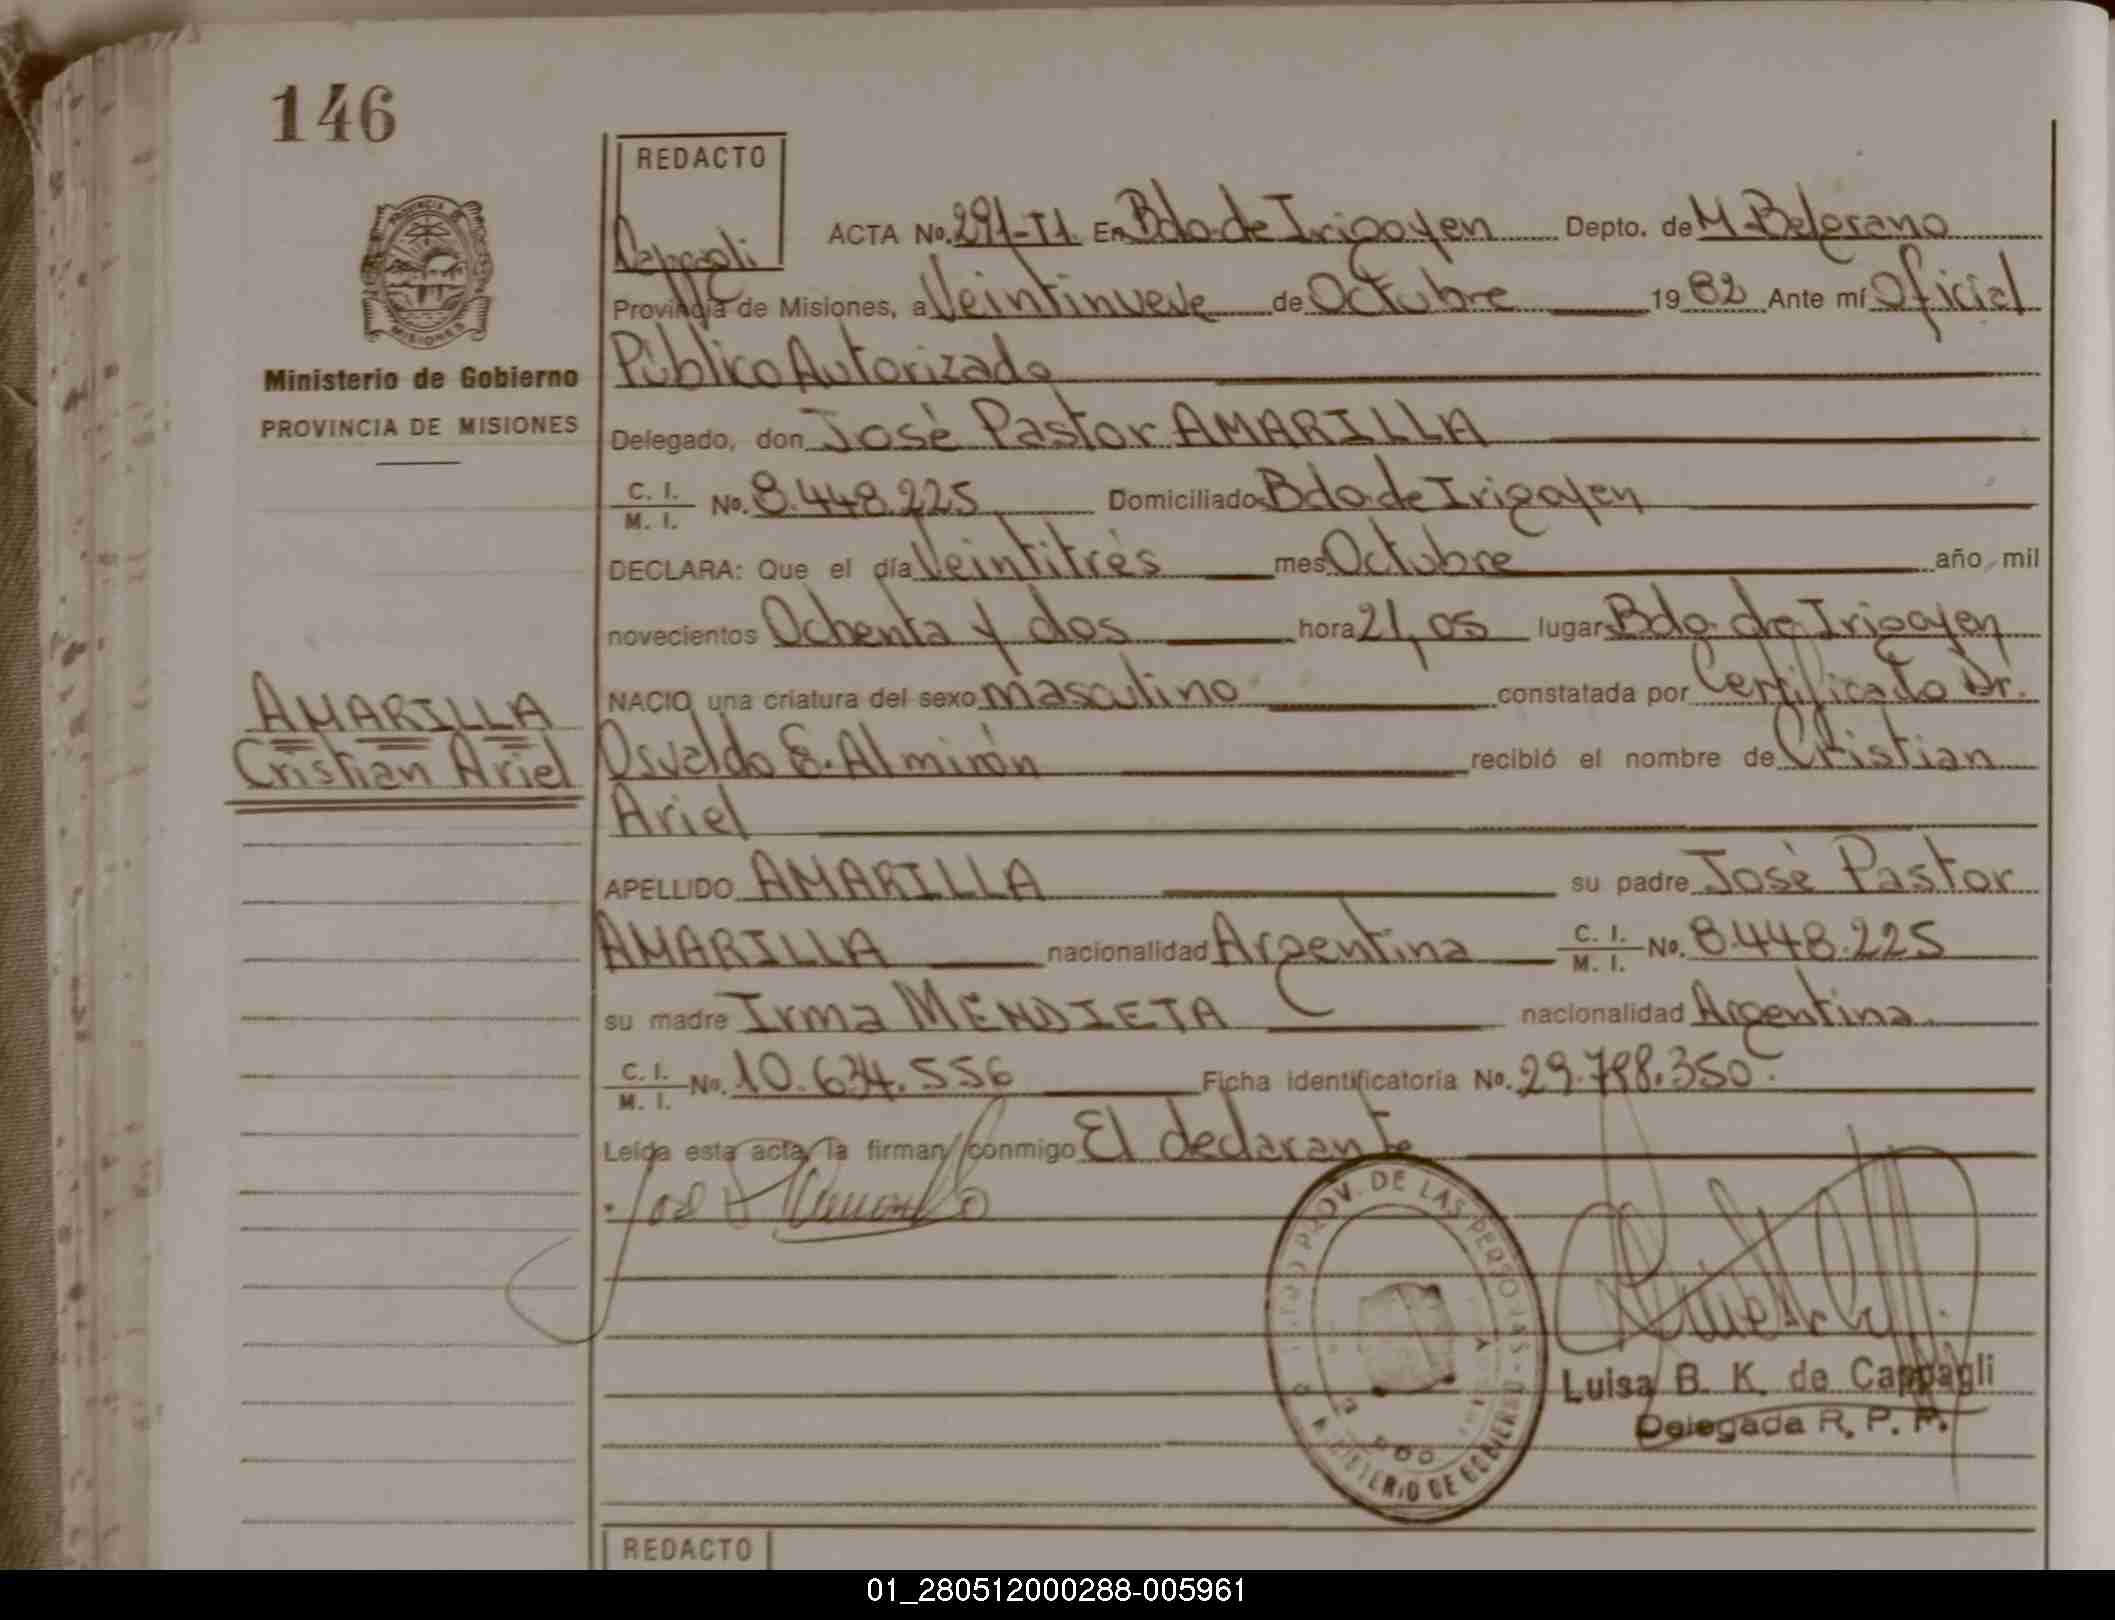 146
REDACTO
Cappagli
ACTA No. 291-T1. En Bdo. de Irigoyen Depto. de M. Belgrano
Provincia de Misiones, a Veintinueve de Octubre 1982 Ante mí Oficial
Público Autorizado
Ministerio de Gobierno
PROVINCIA DE MISIONES
Delegado, don José Pastor AMARILLA
C. I. / M. I. No. 8.448.225 Domiciliado Bdo. de Irigoyen
DECLARA: Que el día Veintitrés mes Octubre año mil
novecientos Ochenta y dos hora 21,05 lugar Bdo. de Irigoyen
NACIO una criatura del sexo masculino constatada por Certificado Dr.
AMARILLA
Cristian Ariel
Osvaldo E. Almirón recibió el nombre de Cristian
Ariel
APELLIDO AMARILLA su padre José Pastor
AMARILLA nacionalidad Argentina C. I. / M. I. No. 8.448.225
su madre Irma MENDIETA nacionalidad Argentina
C. I. / M. I. No. 10.634.556 Ficha identificatoria No. 29.798.350.
Leída esta acta, la firman conmigo El declarante
PROV. DE LAS PERSONAS
DE GOBIERNO
Luisa B. K. de Cappagli
Delegada R. P. P.
REDACTO
01_280512000288-005961